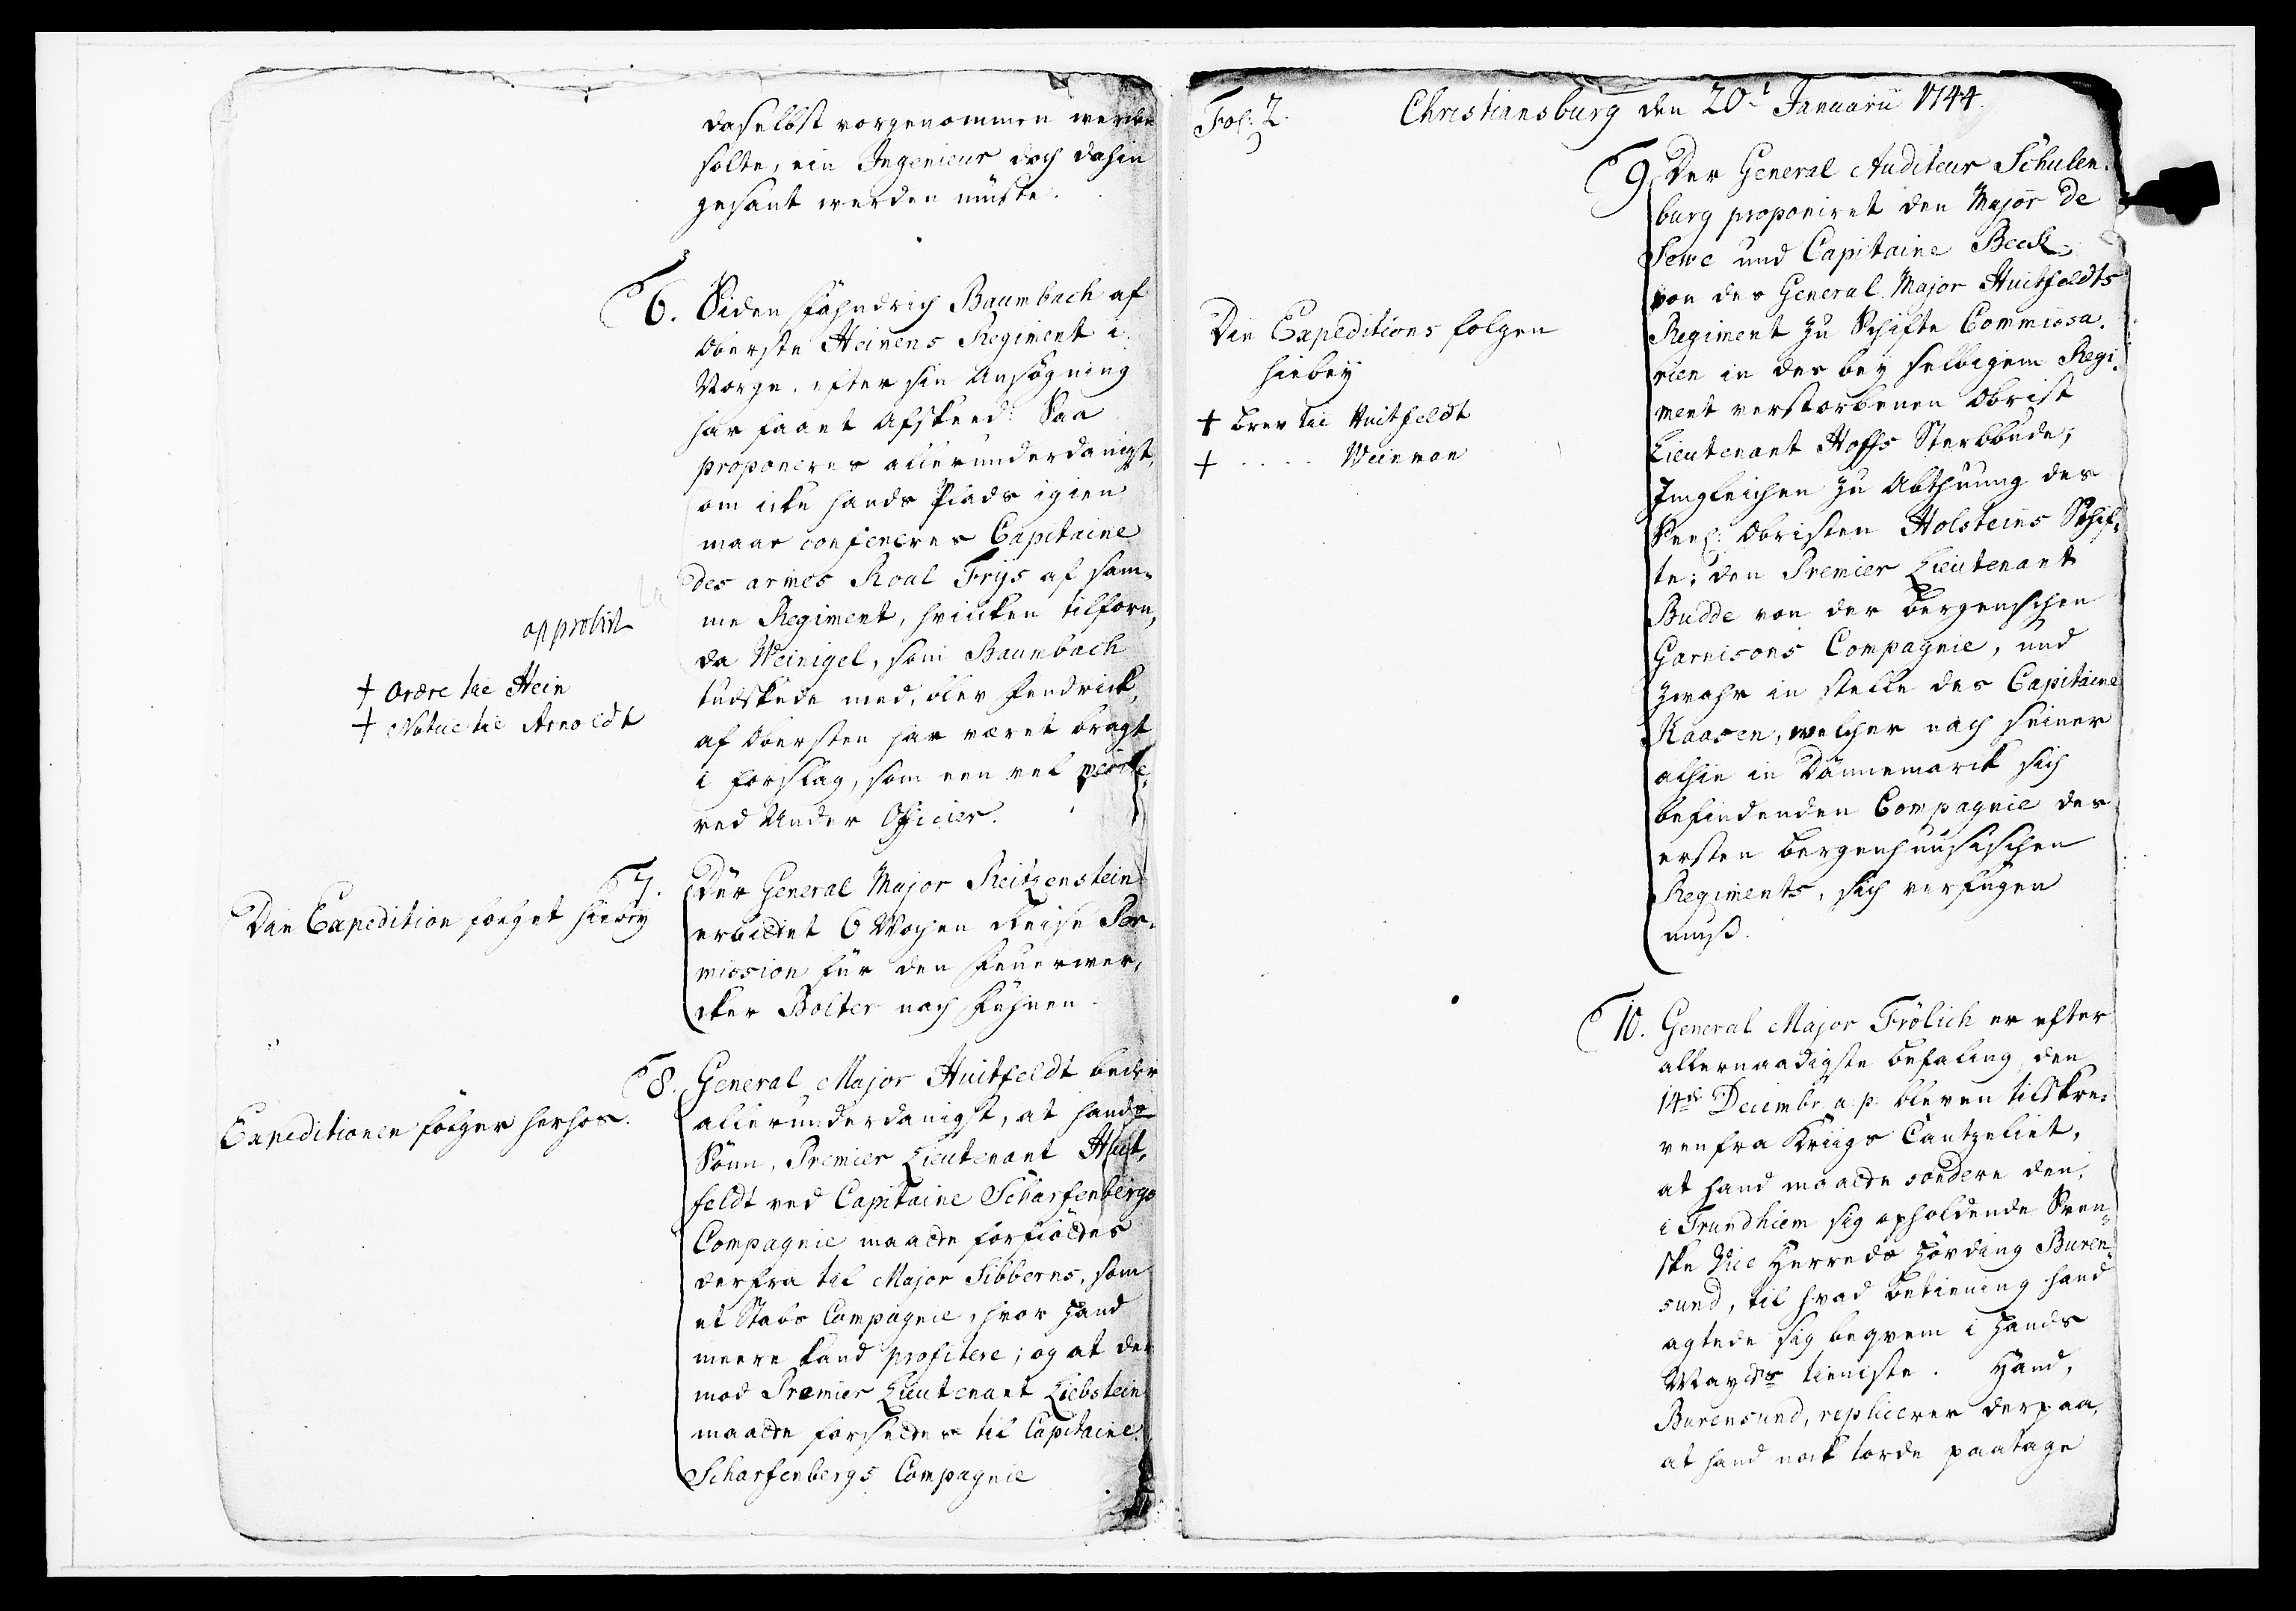 daselbst vorgenommen werden
solte, ein Ingenieur doch dahin
gesant werden müste.
6. Siden Fähndrich Baumbach af
Oberste Heinens Regiment i
Norge, efter sin Ansøgning
har faaet Afskeed: Saa
proponeres allerunderdanigst,
om icke hands Plads igien
maae confereres Capitaine
des armes Roal Frijs af sam-
me Regiment, hvilken tilforn,
da Weinigel, som Baumbach
tudskede med, blev Fendrick,
af Obersten har været bragt
i forslag, som een vel meri-
red Under Officier.
approbirt
+ Ordre til Hein
+ Notice til Arnoldt
7. Der General Major Reitzenstein
erbittet 6 Wochen Reise Per-
mission für den Feuerwer-
cker Bolter nach Fühnen.
Die Expedition folget hiebey
8. General Major Huitfeldt beder
allerunderdanigst, at hands
Sönn, Premier Lieutenant Huit-
feldt ved Capitaine Scharfenbergs
Compagnie maatte forflöttes
derfra til Major Sibberns, som
et Stabs Compagnie, hvor hand
meere kand profitere; og at der
mod Premier Lieutenant Liebstein
maatte forsettes til Capitaine
Scharfenbergs Compagnie
Expeditionen følger herhos.
Fol: 2. Christiansburg den 20t Januarii 1744.
9. Der General Auditeur Schulen-
burg proponiret den Major de
Seue und Capitaine Beck
von des General Major Huitfeldts
Regiment zu Schifte Commissa-
rien in der bey selbigem Regi-
ment verstorbenen Obrist
Lieutenant Hoffs Sterbbude;
Imgleichen zu Abthuung des
Seel: Obristen Holsteins Schif-
te; den Premier Lieutenant
Budde von der Bergenschen
Garnisons Compagnie, und
zwahr in stelle des Capitaine
Kaasen, welcher nach seiner
alhie in Dännemarck sich
befindenden Compagnie des
ersten Bergenhuusischen
Regiments, sich verfügen
muß.
Die Expeditions folgen
hiebey
+ Brev til Huitfeldt
+ ....
10. General Major Frölich er efter
allernaadigste Befaling den
14de Decembr. a: p: bleven tilskre-
ven fra Kriigs Cantzeliet,
at hand maatte sondere den
i Trundhiem sig opholdende Sven-
ske Vice Herreds Høvding Buren-
sund, til hvad Betiening hand
agtede sig beqvem i Hands
Mayts tieniste. Hand,
Burensund, replicerer derpaa,
at hand nock torde paatage